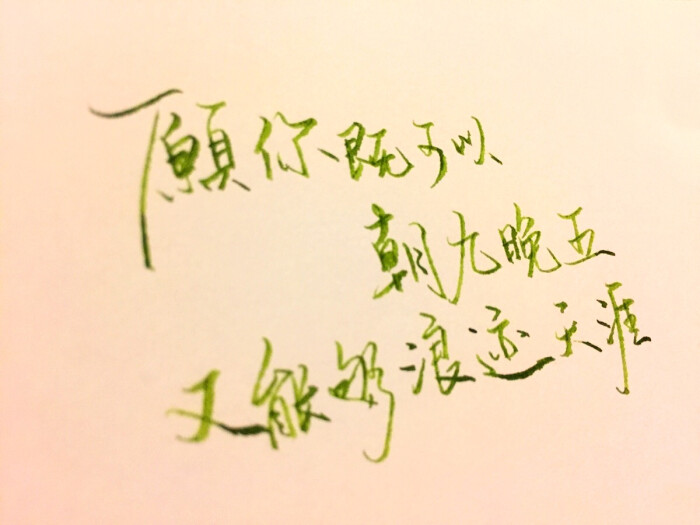 願你既可以
朝九晚五
又能够浪迹天涯